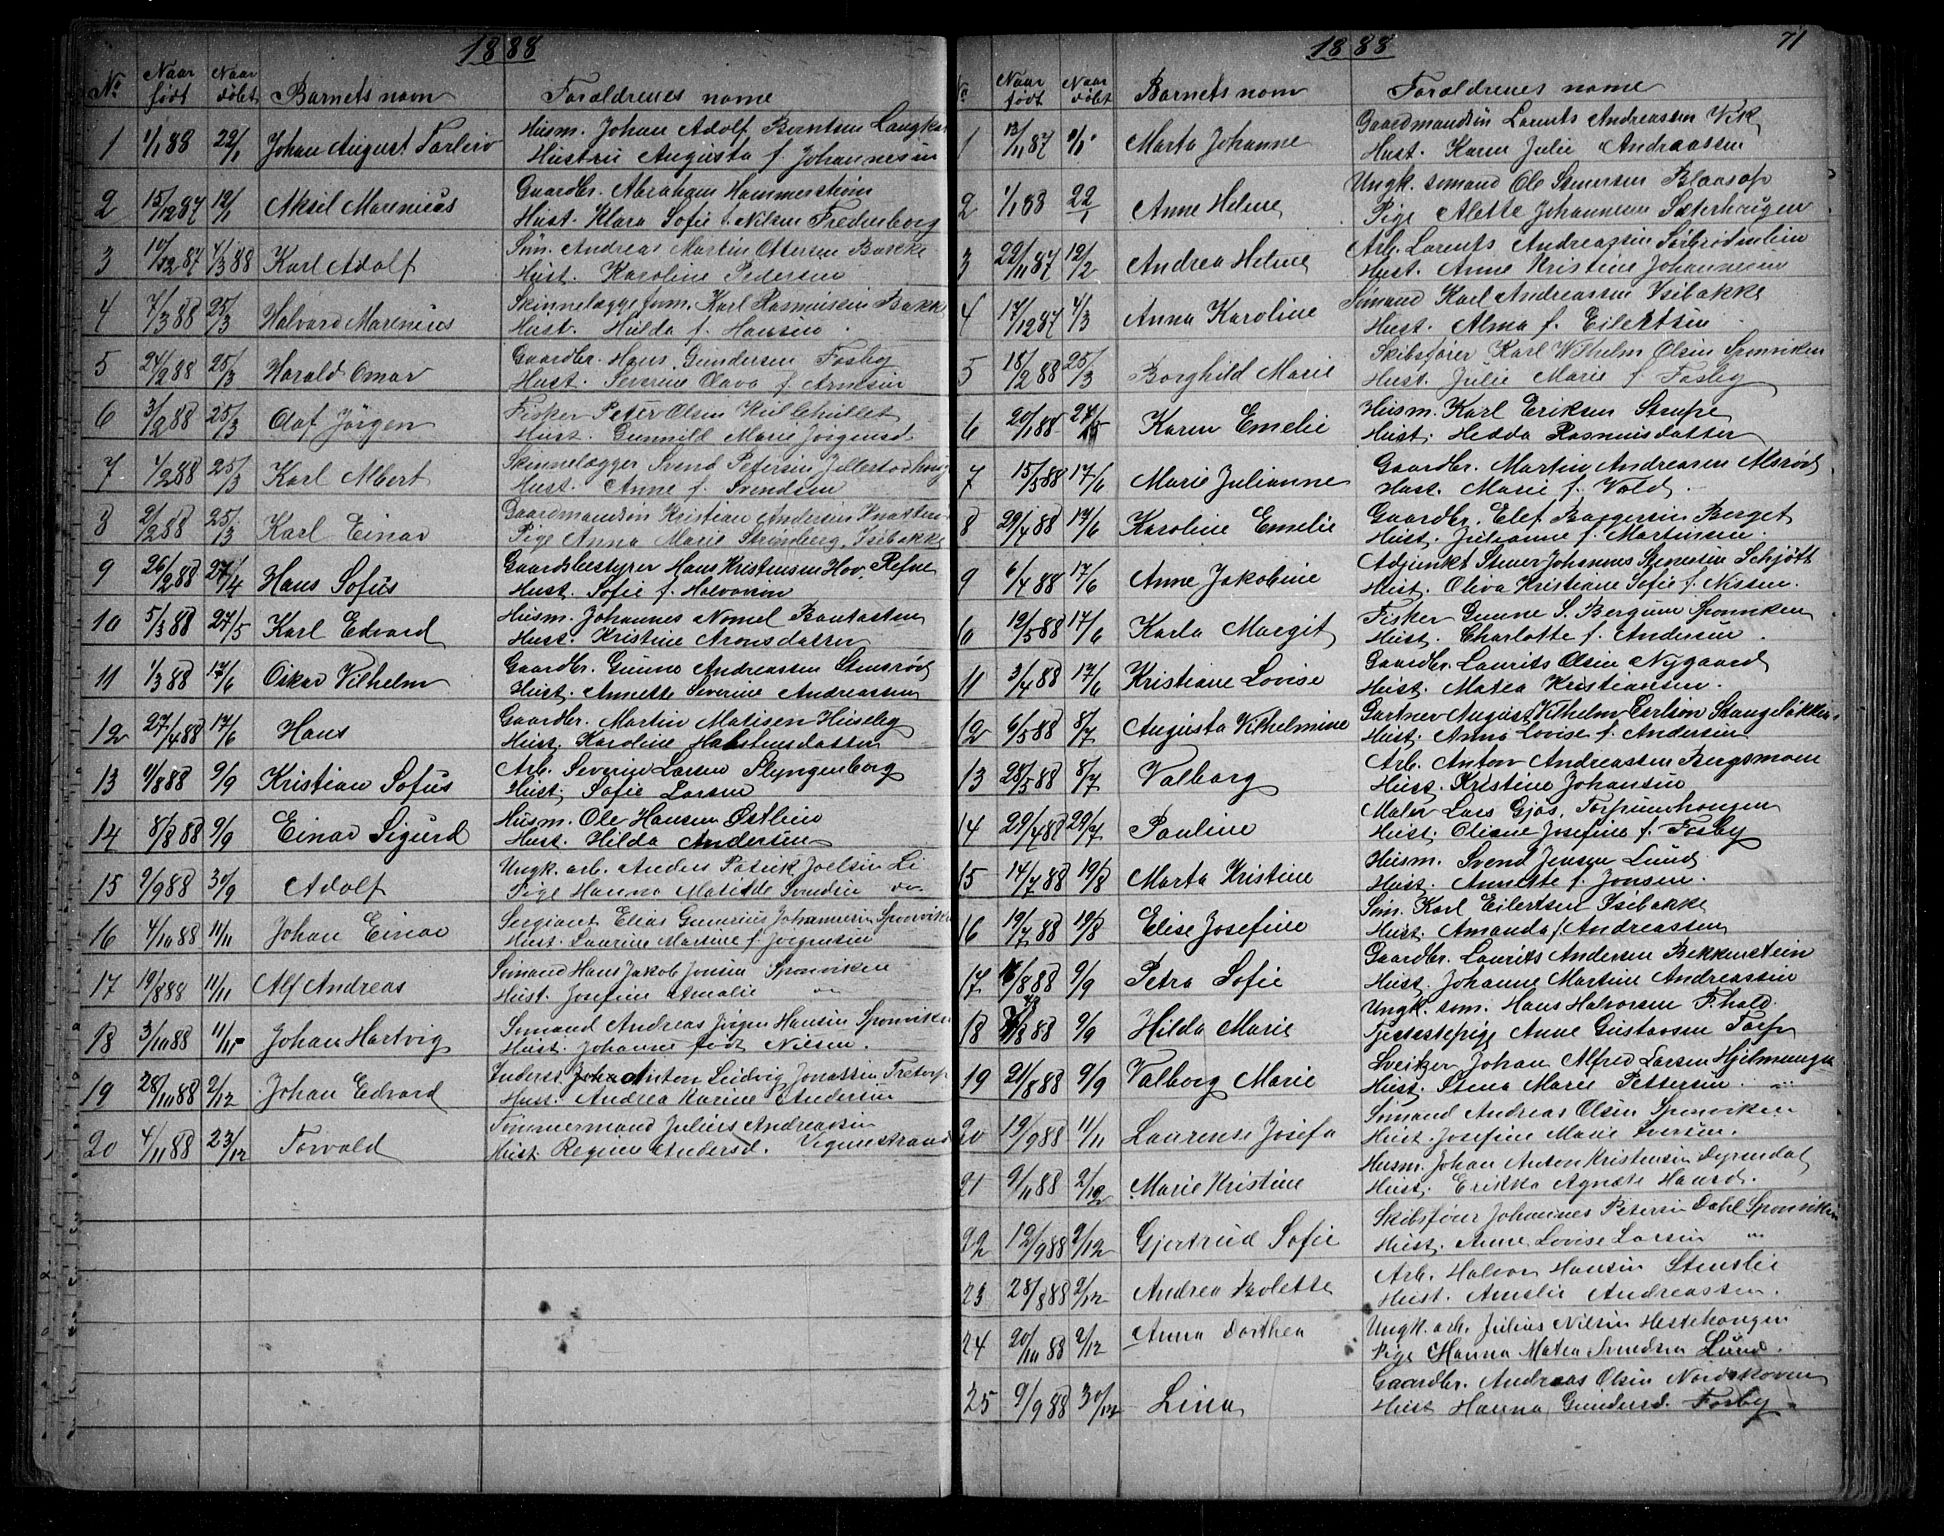 1888
No Naar født Naar døbt Barnets navn Forældrenes navne
1 1/1 88 22/1 Johan August Torleiv Husm. Johan Adolf Berntsen
Hustru Augusta f. Johannesen
2 15/12 87 12/1 Aksel Marenius Gaardbr. Abraham Hammerstrøm
Hust. Klara Sofie f. Nilsen Fredenborg
3 10/12 87 4/3 88 Karl Adolf Søm. Andreas Martin Ottersen Bakke
Hust. Karoline Pedersen
4 7/3 88 25/3 Halvard Marenius Skinnelægge form. Karl Rasmussen Bakke
Hust. Hulda f. Hansen
5 24/2 88 25/3 Harald Omar Gaardbr. Hans Gundersen Fosby
Hust. Severine Olava f. Arnesen
6 3/2 88 25/3 Olaf Jørgen Fisker Peter Olsen
Hust. Gunnild Marie Jørgensd
7 4/2 88 25/3 Karl Albert Skinnelægger Svend Petersen
Hust. Anne f. Svendsen
8 2/2 88 25/3 Karl Einar Gaardmandsøn Kristian Andersen
Pige Anna Marie Strømberg, Isebakke
9 26/2 88 27/4 Hans Sofus Gaardsbestyrer Hans Kristensen Hov, Refne
Hust. Sofie f. Halvorson
10 5/3 88 27/5 Karl Edvard Husm. Johannes Nomel Bautasten
Hust. Kristine Aronsdatter
11 1/3 88 17/6 Oskar Vilhelm Gaardbr. Gunno Andreassen Stensrød
Hust. Annette Severine Andreassen
12 27/4 88 17/6 Hans Gaardbr. Martin Matisen Huseby
Hust. Karoline Halstensdatter
13 9/8 88 9/9 Kristian Sofus Arb. Severin Larsen Slyngenborg
Hust. Sofie Larsen
14 8/8 88 9/9 Einar Sigurd Husm. Ole Hansen Østlien
Hust. Hilda Andersen
15 9/9 88 30/9 Adolf Ungk. arb. Anders Patrik Joelsen Li
Pige Hanna Matilde Svendsen do
16 4/10 88 11/11 Johan Einar Sergiant Elias Gunerius Johannesen Sponviken
Hust. Laurine Martine f. Jørgensen
17 19/8 88 11/11 Alf Andreas Sømand Hans Jakob Jonsen Sponviken
Hust. Josefine Amalie do
18 3/10 88 11/11 Johan Hartvig Sømand Andreas Jørgen Hansen Sponviken
Hust. Johanne født Nilsen.
19 28/10 88 2/12 Johan Edvard Inderst. Johan Anton Ludvig Jonassen
Hust. Andrea Karine Andersen
20 4/11 88 23/12 Torvald Tømmermand Julius Andreassen
Hust. Regine Andersd. Vigenestrand
1888 71
No Naar født Naar døbt Barnets navn Forældrenes navne
1 13/11 87 1/1 Marta Johanne Gaardmandsøn Larents Andreassen Vik
Hust. Karen Julie Andreassen
2 1/1 88 22/1 Anne Helene Ungk. sømand Ole Stenersen Blaasop
Pige Alette Johannesen Sæterhaugen
3 22/11 87 12/2 Andrea Helene Arb. Larents Andreassen
Hust. Anne Kristine Johannesen
4 17/12 87 4/3 Anna Karoline Sømand Karl Andreassen Isebakke
Hust. Alma f. Eilertsen
5 18/2 88 25/3 Borghild Marie Skibsfører Karl Vilhelm Olsen Sponviken
Hust. Julie Marie f. Fosby
6 20/1 88 27/5 Karen Emelie Husm. Karl Eriksen Strupe
Hust. Hedda Rasmusdatter
7 15/5 88 17/6 Marie Julianne Gaardbr. Martin Andreasen Alsrød
Hust. Marie f. Vold
8 29/4 88 17/6 Karoline Emelie Gaardbr. Elef Baggersen Berget
Hust. Julianne f. Martinsen.
9 6/4 88 17/6 Anne Jakobine Adjunkt Stener Johannes Stenersen Schjøtt
Hust. Oliva Kristiane Sofie f. Nissen.
10 12/5 88 17/6 Karla Margit Fisker Gunne S. Bergum Sponviken
Hust. Charlotte f. Andersen.
11 3/4 88 17/6 Kristiane Lovise Gaardbr. Laurits Olsen Nygaard
Hust. Matea Kristiansen.
12 6/5 88 8/7 Augusta Vilhelmine Gartner August Vilhelm Carlson Stangeløkken
Hust. Anna Lovise f. Andersen
13 28/5 88 8/7 Valborg Arb. Anton Andreassen Bergsmoen
Hust. Kristine Johansen
14 29/4 88 29/7 Pauline Maler Lars Gjøs,
Hust. Oliane Josefine f. Fosby
15 14/7 88 19/8 Marta Kristine Husm. Svend Jensen Lund
Hust. Annette f. Jonsen.
16 19/7 88 19/8 Elise Josefine Søm. Karl Eilertsen Isebakke
Hust. Amanda f. Andreassen
17 16/8 88 9/9 Petra Sofie Gaardbr. Lauriks Andersen Bekkenstein
Hust. Johanne Martine Andreassen
18 88 9/9 Hilda Marie Ungk. søm. Hans Halvorsen F.hald.
Tjenestepige Anne Gustavsen
19 21/8 88 9/9 Valborg Marie Sveitzer Johan Alfred Larsen
Hust. Stina Marie Pettersen
20 19/9 88 11/11 Laurense Josefa Sømand Andreas Olsen Sponviken
Hust. Josefine Marie Iversen.
21 9/11 88 2/12 Marie Kristine Husm. Johan Anton Kristensen Dyrendal
Hust. Erikka Agnete Hansd.
22 12/9 88 2/12 Gjertrud Sofie Skibsfører Johannes Petersen Dahl Sponviken
Hust. Anne Lovise Larsen "
23 28/8 88 2/12 Andrea Bolette Arb. Halvor Hansen Stenslie
Hust. Amelie Andreassen.
24 20/10 88 2/12 Anna Dorthea Ungk. arb. Julius Nilsen Hestehaugen
Pige Hanna Matea Svendsen Lund.
25 9/9 88 30/12 Lina Gaardbr. Andreas Olsen Nordskoven
Hust Hanna Gundersd. Fosby